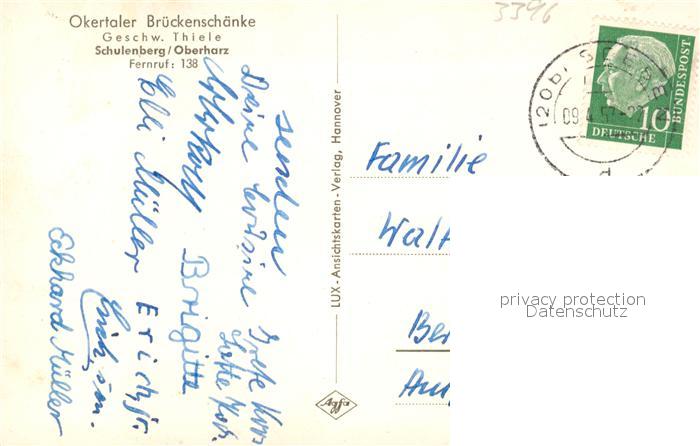 3396
Okertaler Brückenschänke
Geschw. Thiele
Schulenberg/Oberharz
Fernruf: 138
senden
Deine
Brigitte
Elli Müller Erich, jr.
Erich, sen.
Eckhard Müller
LUX-Ansichtskarten-Verlag, Hannover
Agfa
(20b)
09.4.57
d
10
DEUTSCHE
BUNDESPOST
Familie
Walt
Be
privacy protection
Datenschutz